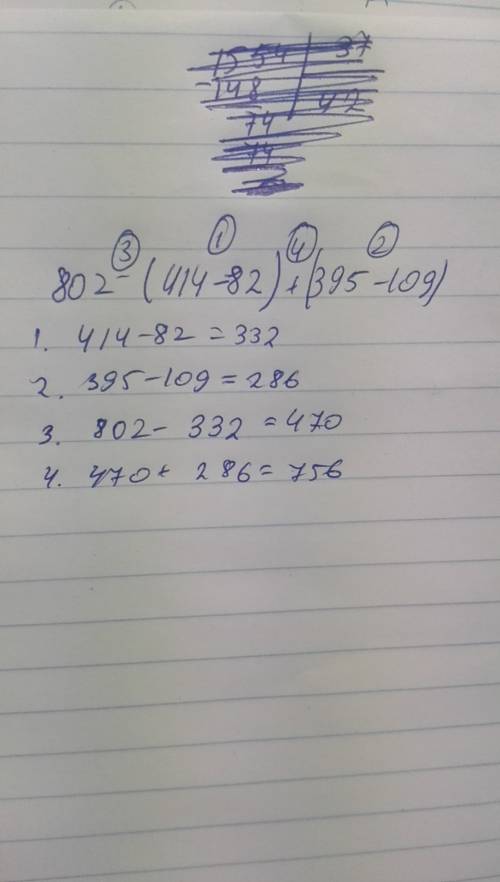 1554 37
-148 42
74
74
③ ① ④ ②
802-(414-82)+(395-109)
1. 414-82=332
2. 395-109=286
3. 802-332=470
4. 470+286=756